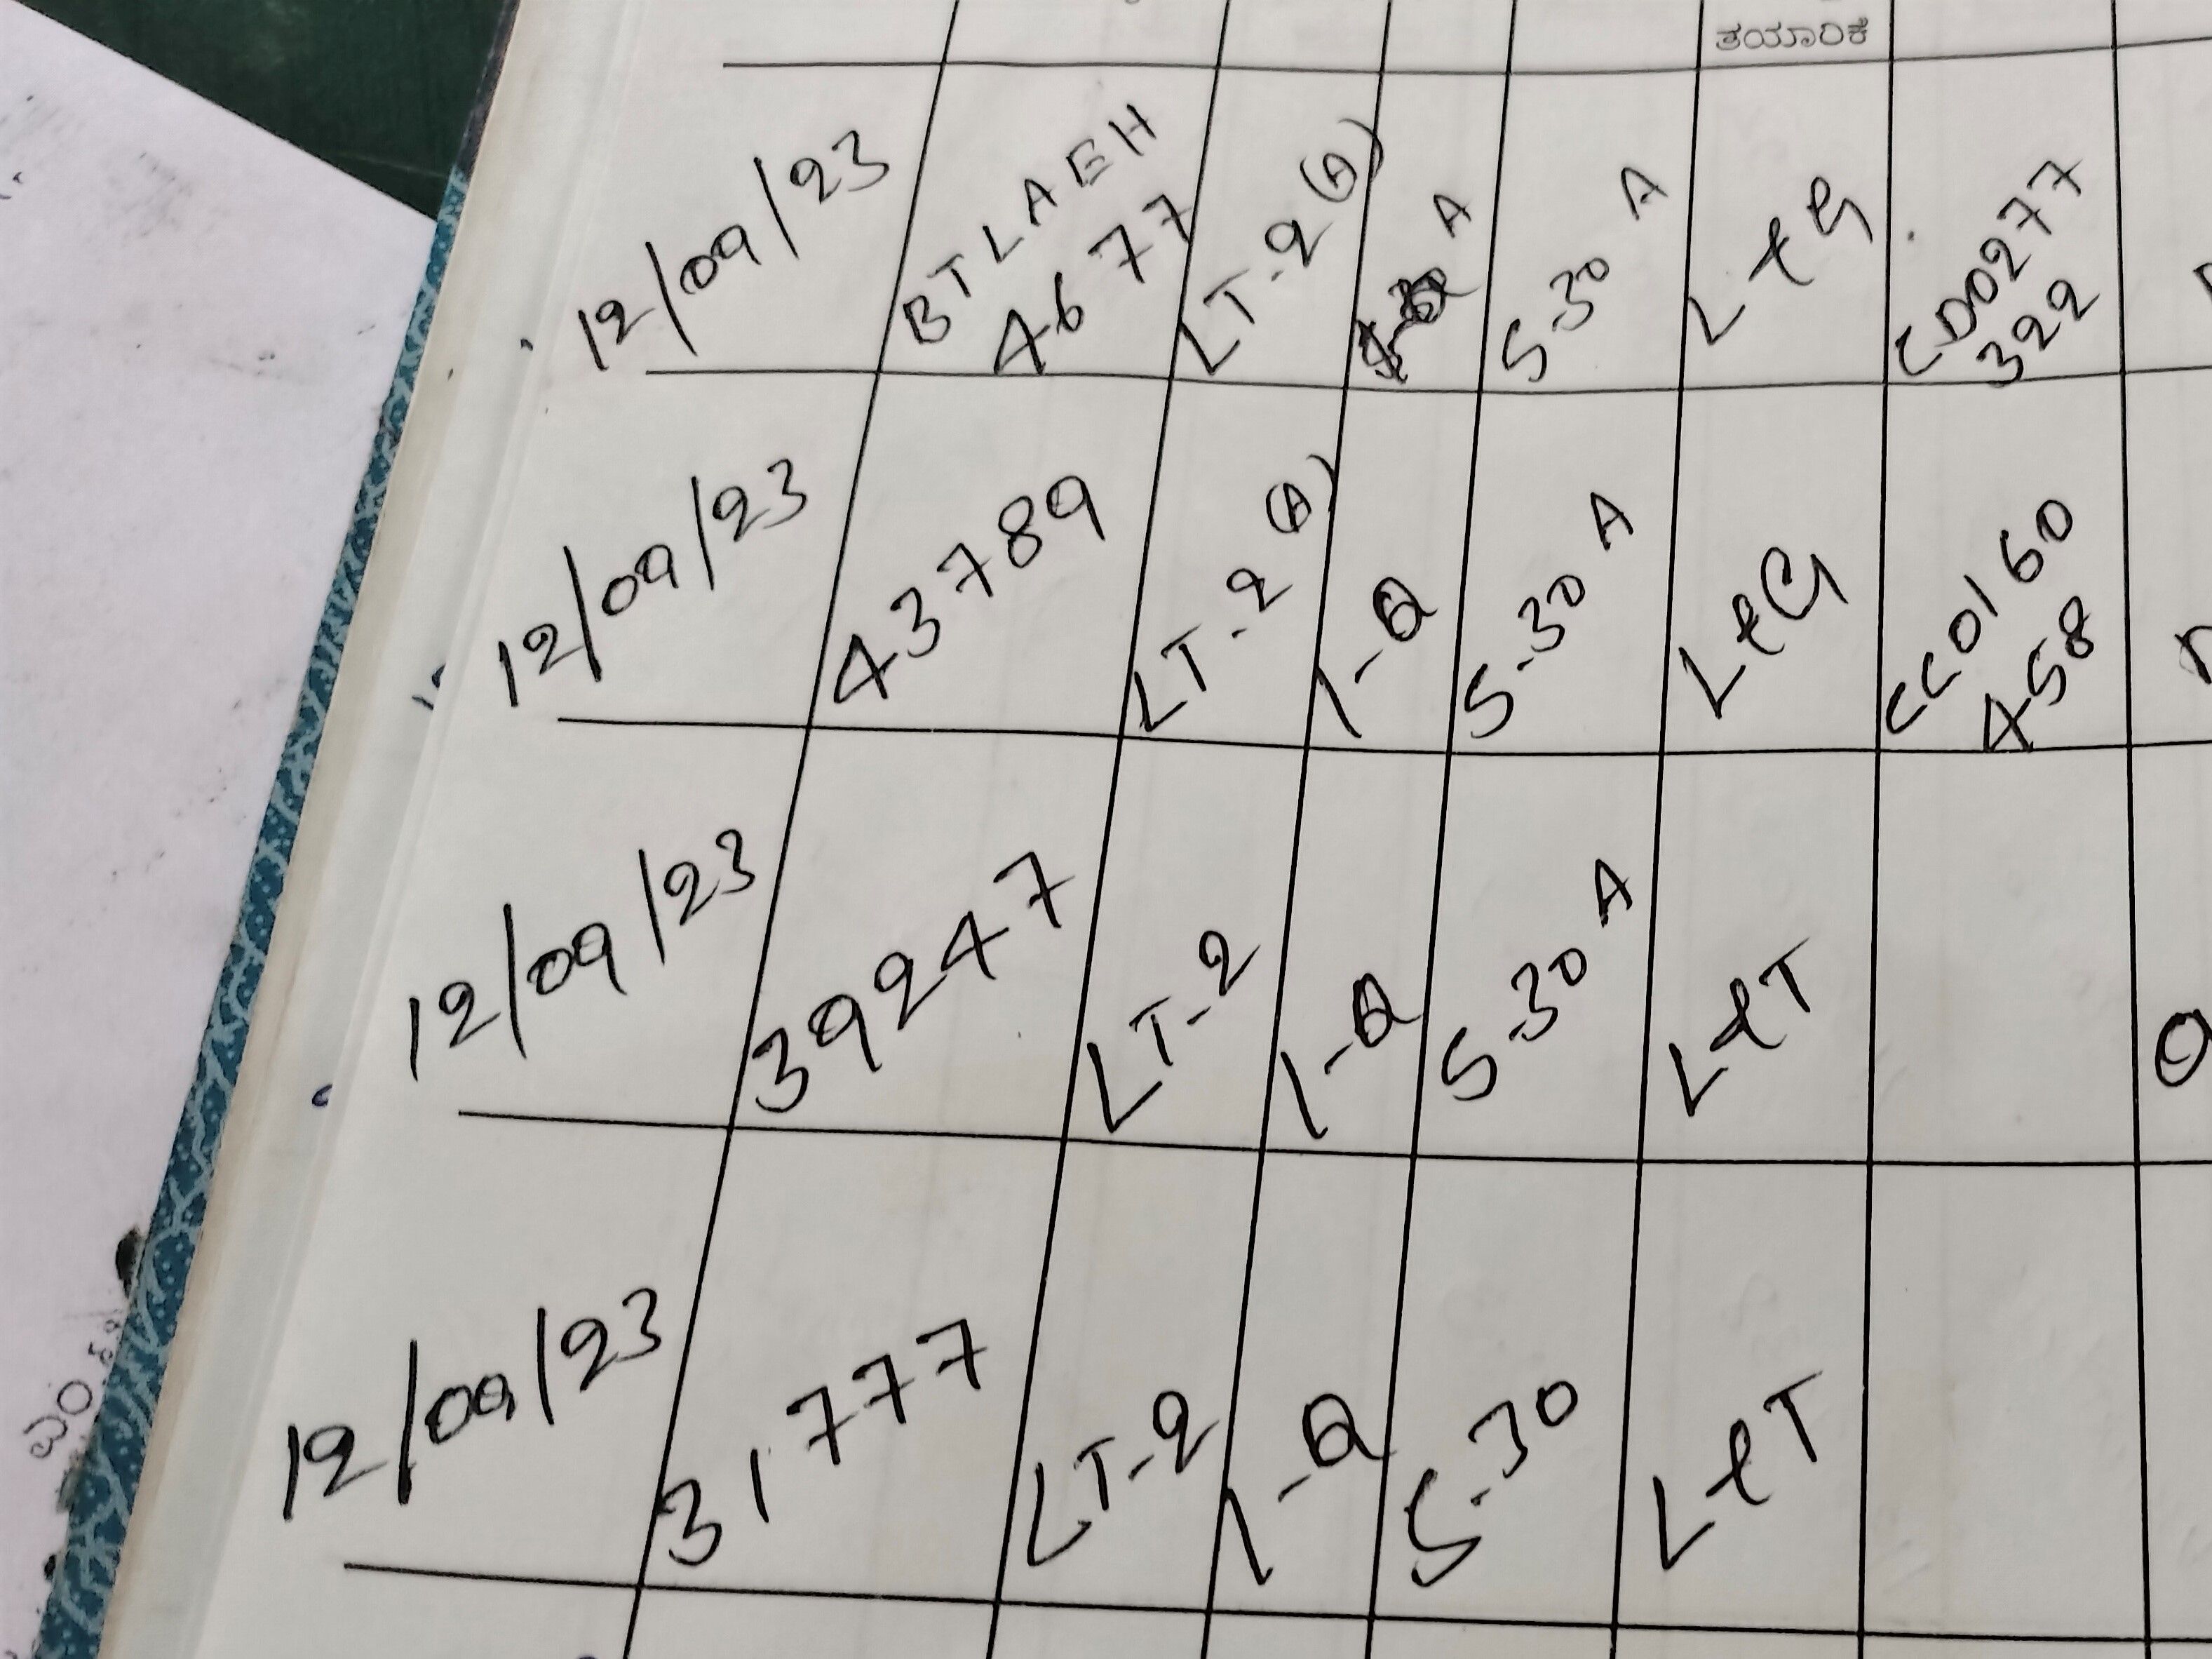 ತಯಾರಿಕೆ
12/09/23 BTLAEH 4677 LT-2(A) A 5-30 A L&G CD0277 322
12/09/23 43789 LT-2(A) 1-Q 5-30 A L&G CC0160 458
12/09/23 39247 LT-2 1-Q 5-30 A L&T
12/09/23 31777 LT-2 1-Q 5-30 L&T